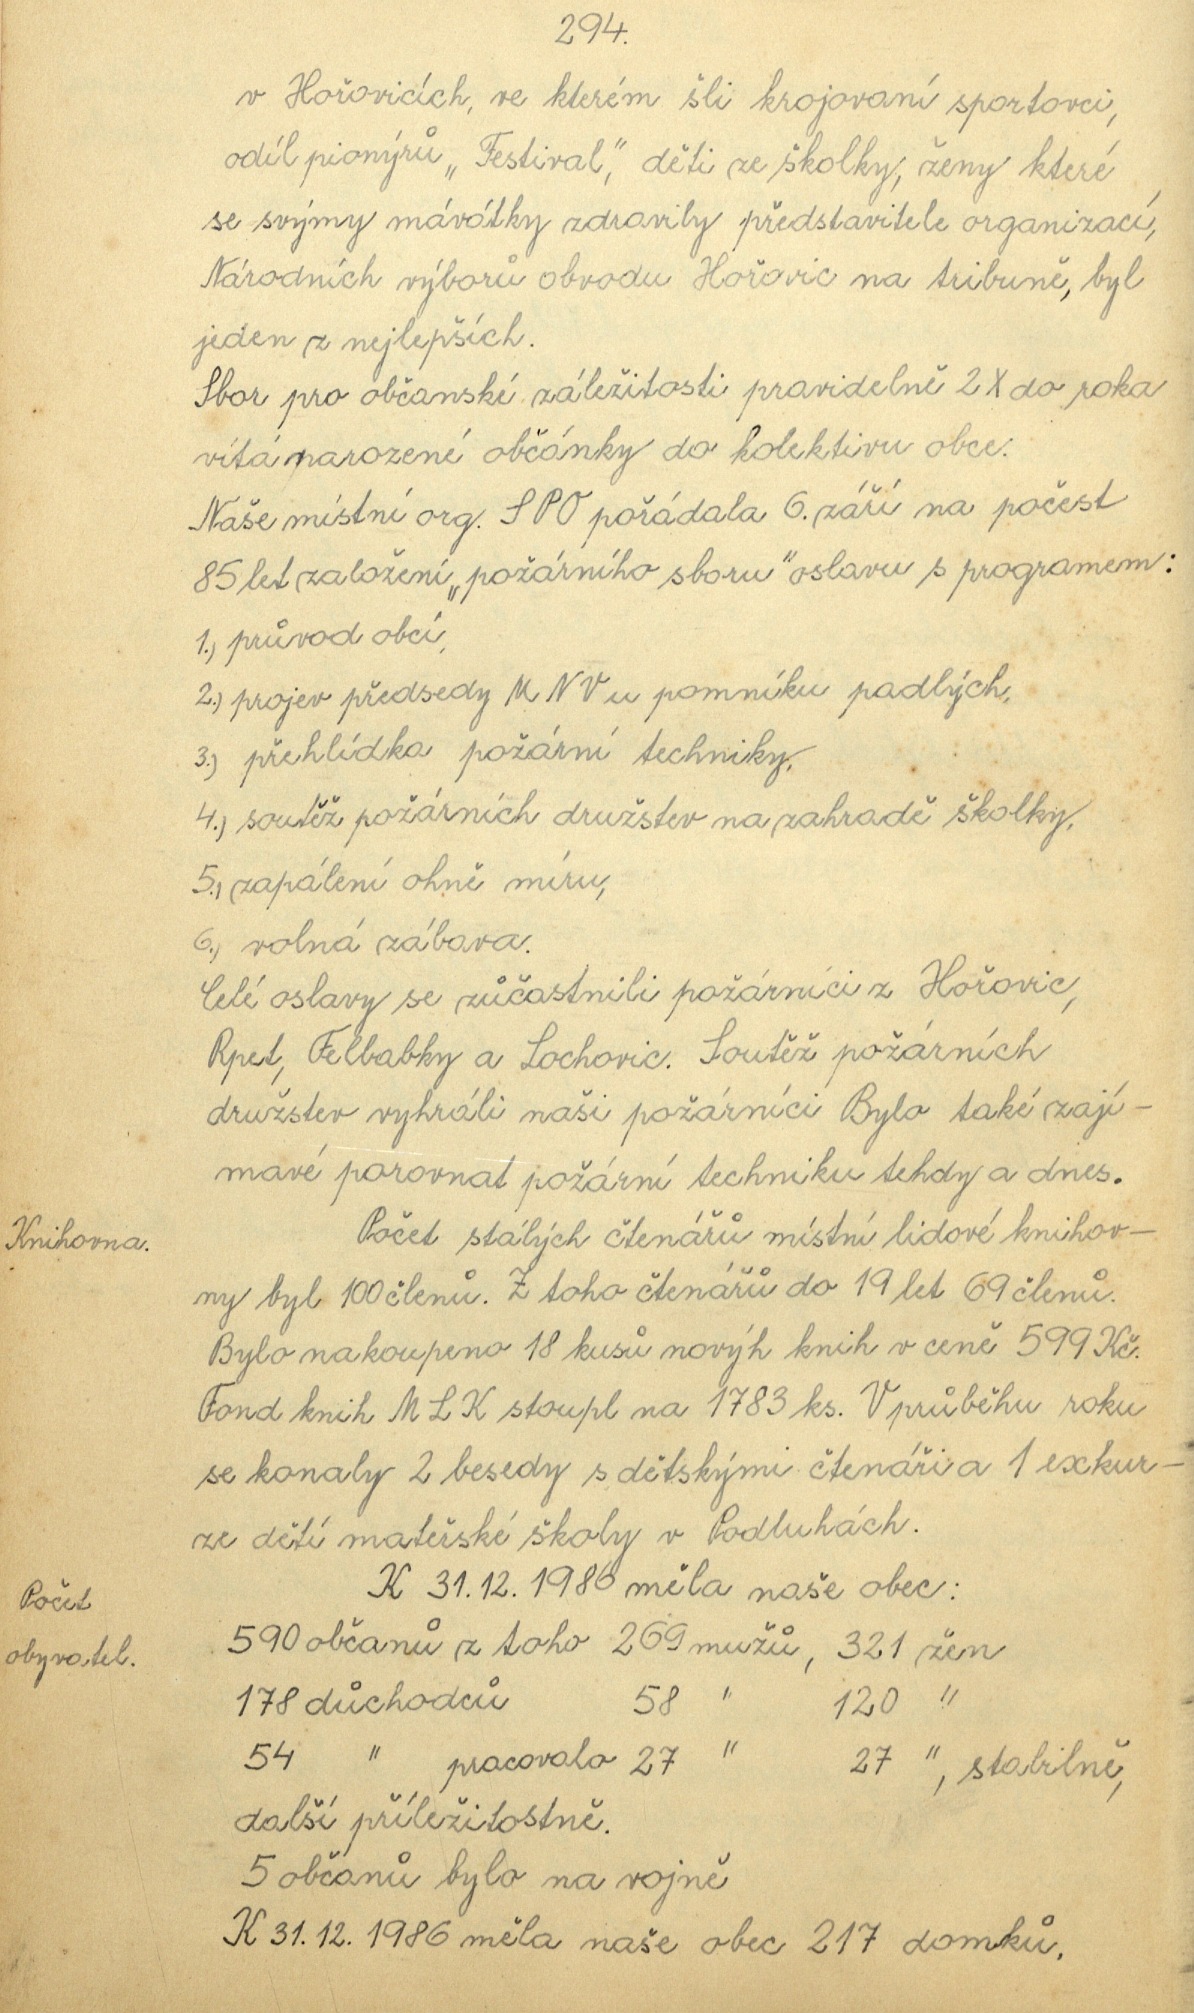 294.
v Hořovicích, ve kterém šli krojovaní sportovci,
odíl pionýrů „Festival," děti ze školky, ženy které
se svýmy mávátky zdravily představitele organizací,
Národních výborů obvodu Hořovic na tribuně, byl
jeden z nejlepších.
Sbor pro občanské záležitosti pravidelně 2 X do roka
vítá narozené občánky do kolektivu obce.
Naše místní org. SPO pořádala 6. září na počest
85 let založení „požárního sboru" oslavu s programem:
1.) průvod obcí,
2.) projev předsedy MNV u pomníku padlých,
3.) přehlídka požární techniky,
4.) soutěž požárních družstev na zahradě školky,
5.) zapálení ohně míru,
6.) volná zábava.
Celé oslavy se zůčastnili požárníci z Hořovic,
Rpet, Felbabky a Lochovic. Soutěž požárních
družstev vyhráli naši požárníci Bylo také zají-
mavé porovnat požární techniku tehdy a dnes.
Knihovna.
Počet stálých čtenářů místní lidové knihov-
ny byl 100 členů. Z toho čtenářů do 19 let 69 členů.
Bylo nakoupeno 18 kusů novýh knih v ceně 599 Kč.
Fond knih MLK stoupl na 1783 ks. V průběhu roku
se konaly 2 besedy s dětskými čtenáři a 1 exkur-
ze dětí mateřské školy v Podluhách.
Počet
obyvatel.
K 31.12. 1986 měla naše obec:
590 občanů z toho 269 mužů, 321 žen
178 důchodců 58 " 120 "
54 " pracovalo 27 " 27 ", stabilně,
další příležitostně.
5 občanů bylo na vojně
K 31.12. 1986 měla naše obec 217 domků.